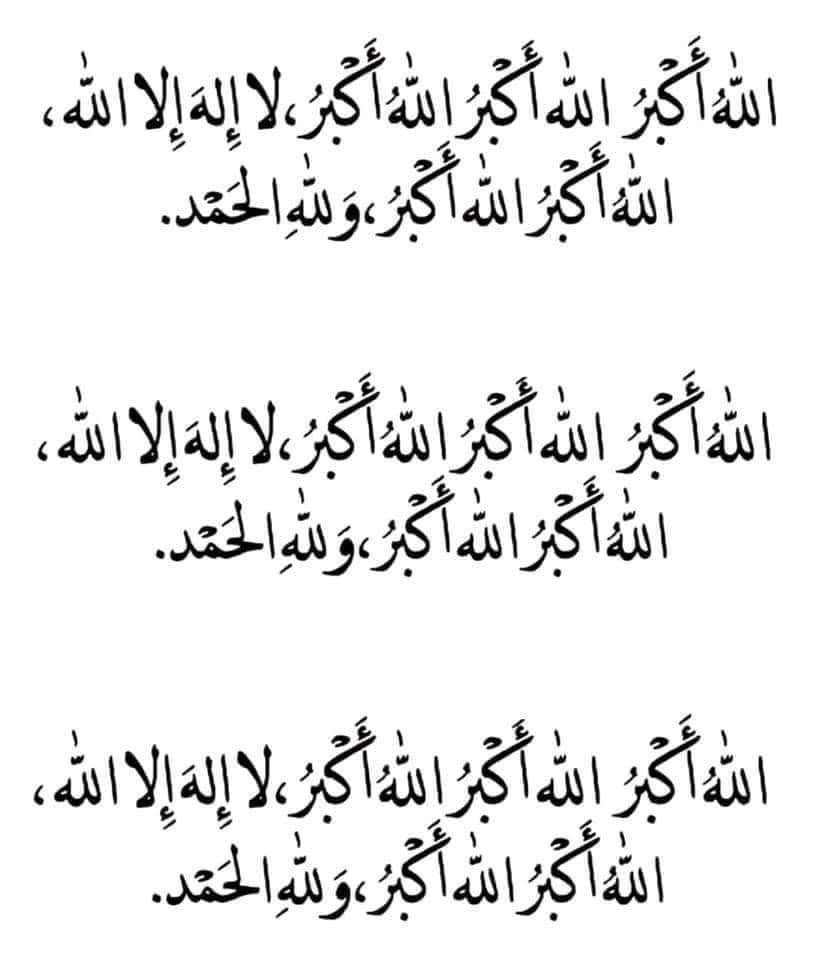 اللهُ أَكْبرُ اللهُ أَكْبرُ اللهُ أَكْبرُ، لا إِلهَ إِلا الله،
اللهُ أَكْبرُ الله أَكْبرُ، وَللهِ الحَمْد.
اللهُ أَكْبرُ اللهُ أَكْبرُ اللهُ أَكْبرُ، لا إِلهَ إِلا الله،
اللهُ أَكْبرُ الله أَكْبرُ، وَللهِ الحَمْد.
اللهُ أَكْبرُ اللهُ أَكْبرُ اللهُ أَكْبرُ، لا إِلهَ إِلا الله،
اللهُ أَكْبرُ الله أَكْبرُ، وَللهِ الحَمْد.